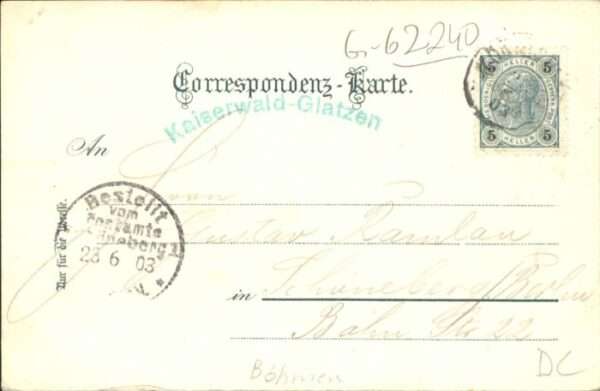 G-62240
5 HELLER 5
5 5
Correspondenz-Karte.
Kaiserwald-Glatzen
An
Herrn
Gustav Ramlau
in Schöneberg/Berlin
Bahn Str 22
Nur für die Adresse.
Bestellt
vom
Postamte
Schöneberg 1
23 6 03
Böhmen
DC